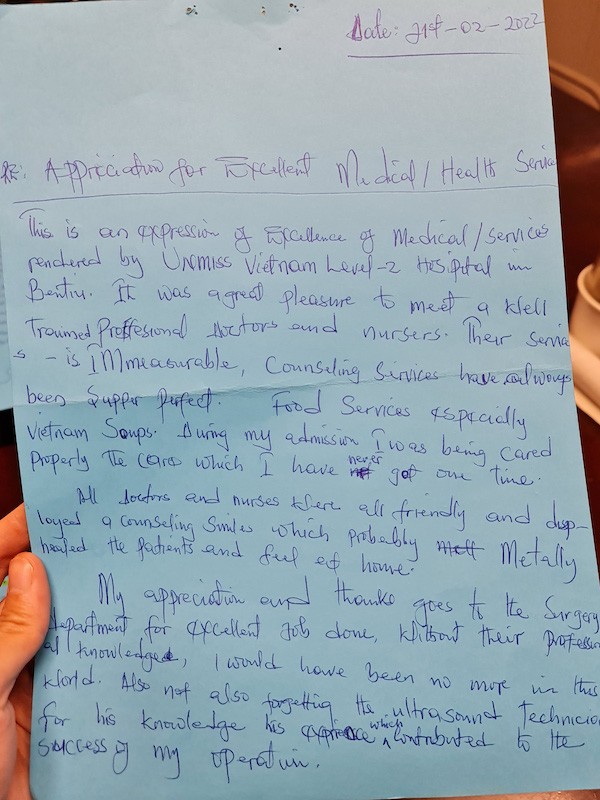 Date: 21st-02-2022
RE: Appriciation for Excellent Medical/Health Service
This is an expression of Excellence of Medical/Services
rendered by UNMISS Vietnam Level-2 Hospital in
Bentiu. It was a great pleasure to meet a Well
Trauned Proffesional Doctors and nursers. Their Service
s - is IMmeasurable, Counseling Services have always
been Supper perfect. Food Services especially
Vietnam Soups. During my admission I was being cared
Properly the care which I have never got one time.
All doctors and nurses Were all friendly and disp-
loyed a counseling Smiles which probably Metally
healed the patients and feel at home.
My appreciation and thanks goes to the Surgery
department for excellent Job done, Without their Profession
al knowledge, I would have been no more in this
World. Also not also forgetting the ultrasound Technician
for his knowledge his which contributed to the
Success of my operation.